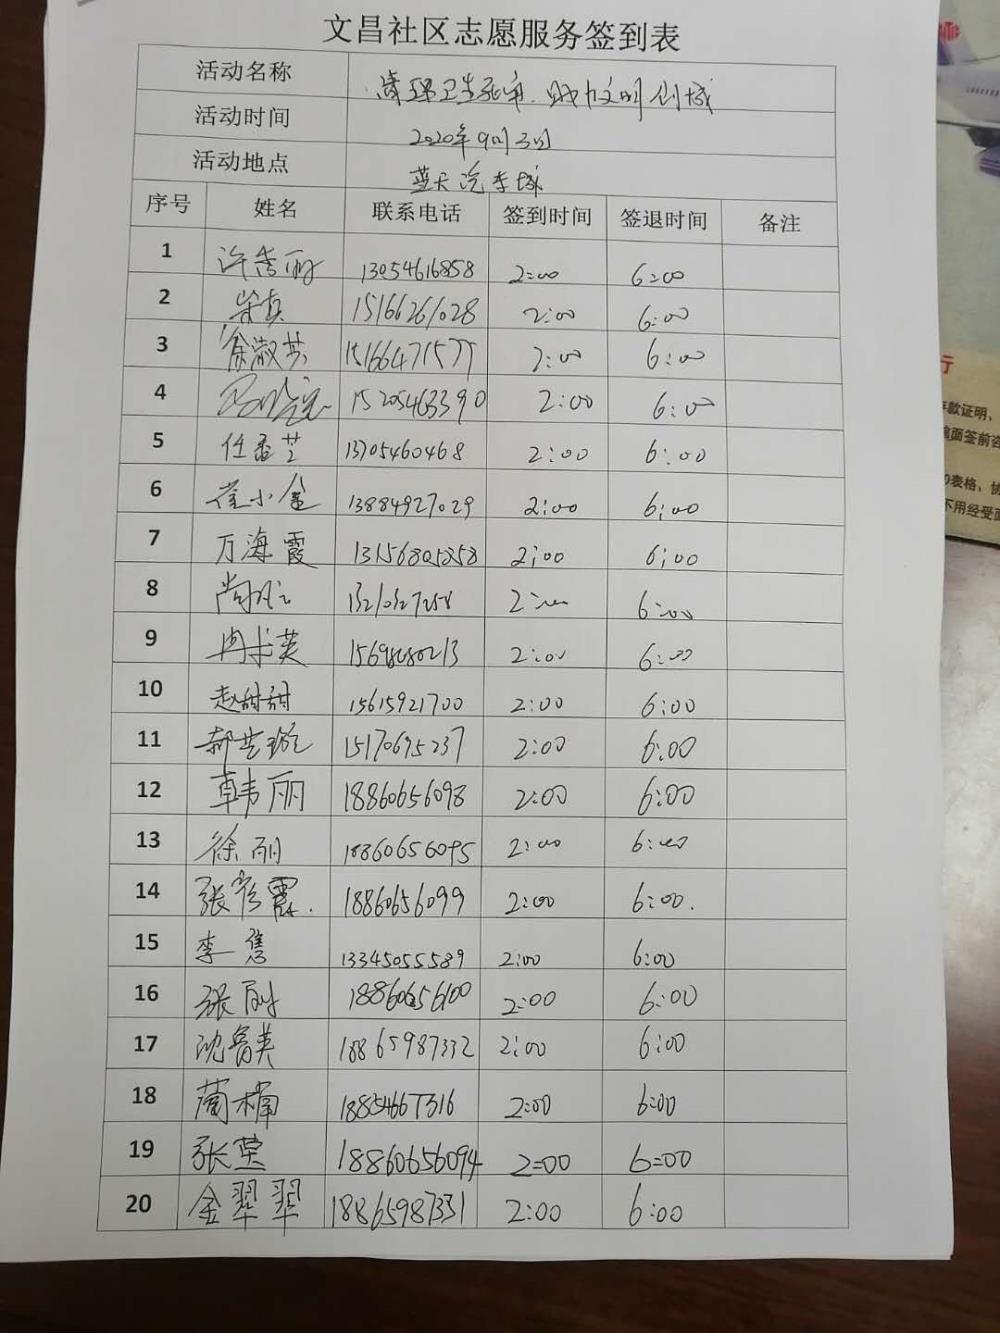 文昌社区志愿服务签到表
活动名称 清理卫生死角.助力文明创城
活动时间 2020年9月3日
活动地点 蓝天汽车城
序号 姓名 联系电话 签到时间 签退时间 备注
1 许秀丽 13054616858 2:00 6:00
2 15166261028 2:00 6:00
3 徐淑芸 15166471577 2:00 6:00
4 15205463390 2:00 6:00
5 任香芝 13705460468 2:00 6:00
6 崔小金 13884927029 2:00 6:00
7 万海霞 2:00 6:00
8 2:00 6:00
9 2:00 6:00
10 赵甜甜 15615921700 2:00 6:00
11 郝芸璇 2:00 6:00
12 韩丽 18860656098 2:00 6:00
13 徐丽 18860656095 2:00 6:00
14 张彦霞. 18860656099 2:00 6:00.
15 李隽 13345055589 2:00 6:00
16 张 18860656100 2:00 6:00
17 沈鲁英 18865987332 2:00 6:00
18 蔺楠 18854667316 2:00 6:00
19 张莹 18860656094 2:00 6:00
20 金翠翠 18865987331 2:00 6:00
行
存款证明、
面签前
表格，
不用经受